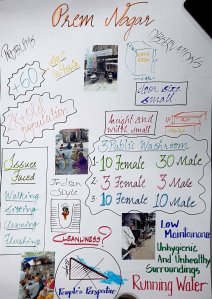 Prem Nagar
PROBLEMS
OBSERVATIONS
+60
are
whole
door size
small
2K+Old
population
height and
width small
3 Public Washroom
1. 10 Female 30 Male
2. 3 Female 3 Male
3. 10 Female 10 Male
Issues
Faced
Walking
Sitting
Cleaning
Flushing
Indian
Style
CLEANLINESS?
Low
Maintanance
Unhygenic
And Unhealthy
Surroundings
Running Water
People's Perspective